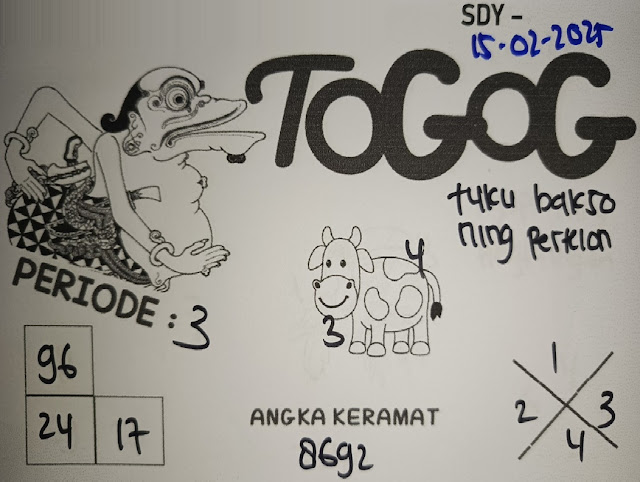 SDY -
15-02-2025
TOGOG
tuku bakso
ning perklon
PERIODE : 3
4
3
96
24 17
ANGKA KERAMAT
8692
1
2 3
4